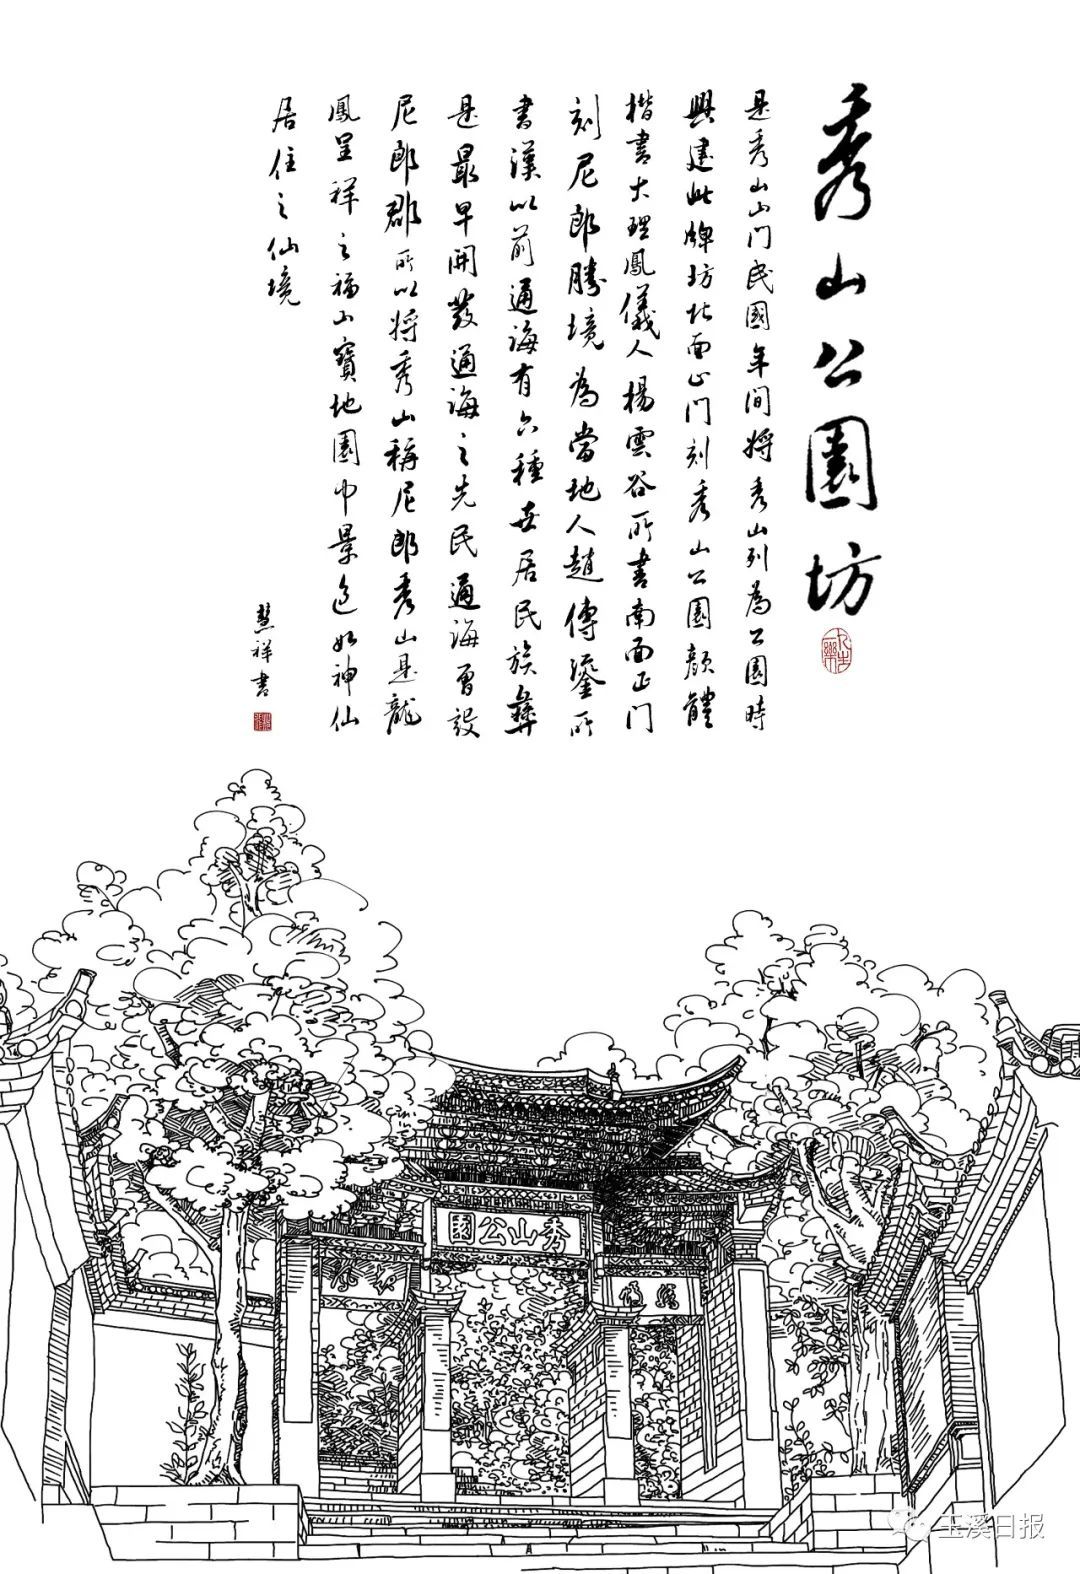 秀山公園坊
是秀山山门民國年间将秀山列為公園時
興建此牌坊北面正门刻秀山公園颜體
楷書大理鳳儀人楊雲谷所書南面正门
刻尼郎勝境為當地人趙傳鎏所
書漢以前通海有六種世居民族彝
是最早開發通海之先民通海曾設
尼郎郡所以将秀山稱尼郎秀山是龍
鳳呈祥之福山寶地園中景色如神仙
居住之仙境
慧祥書
秀山公園
玉溪日报